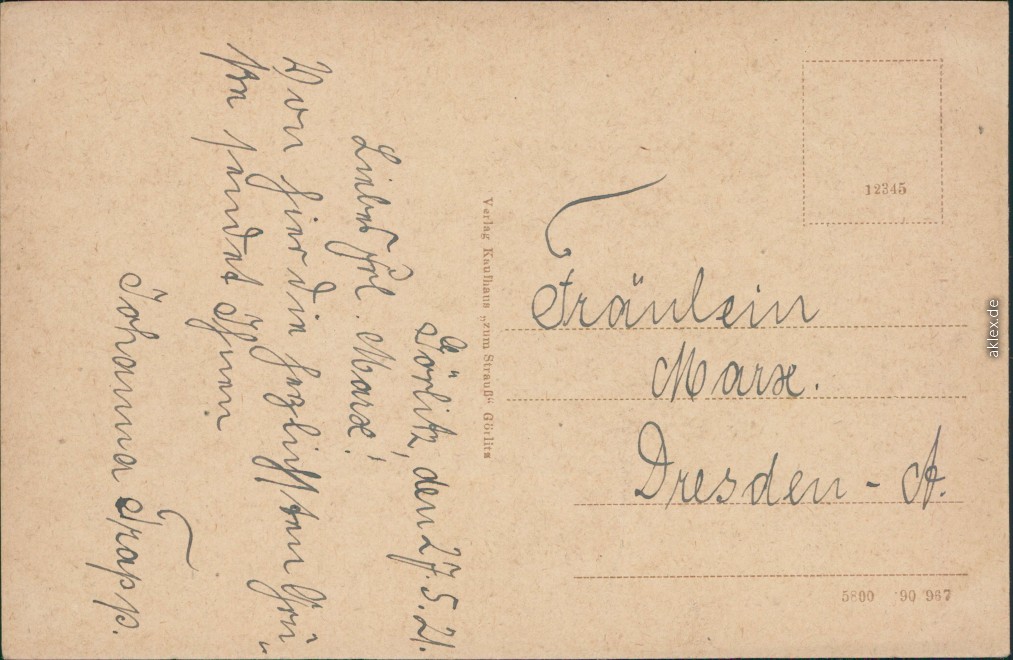 Görlitz, den 27.5.21.
Liebes Frl. Marx!
Von hier die herzlichsten Grü„
ße sendet Ihnen
Johanna Trapp.
Verlag Kaufhaus „zum Strauß“ Görlitz
12345
Fräulein
Marx.
Dresden - A.
5800 90 967
aklex.de